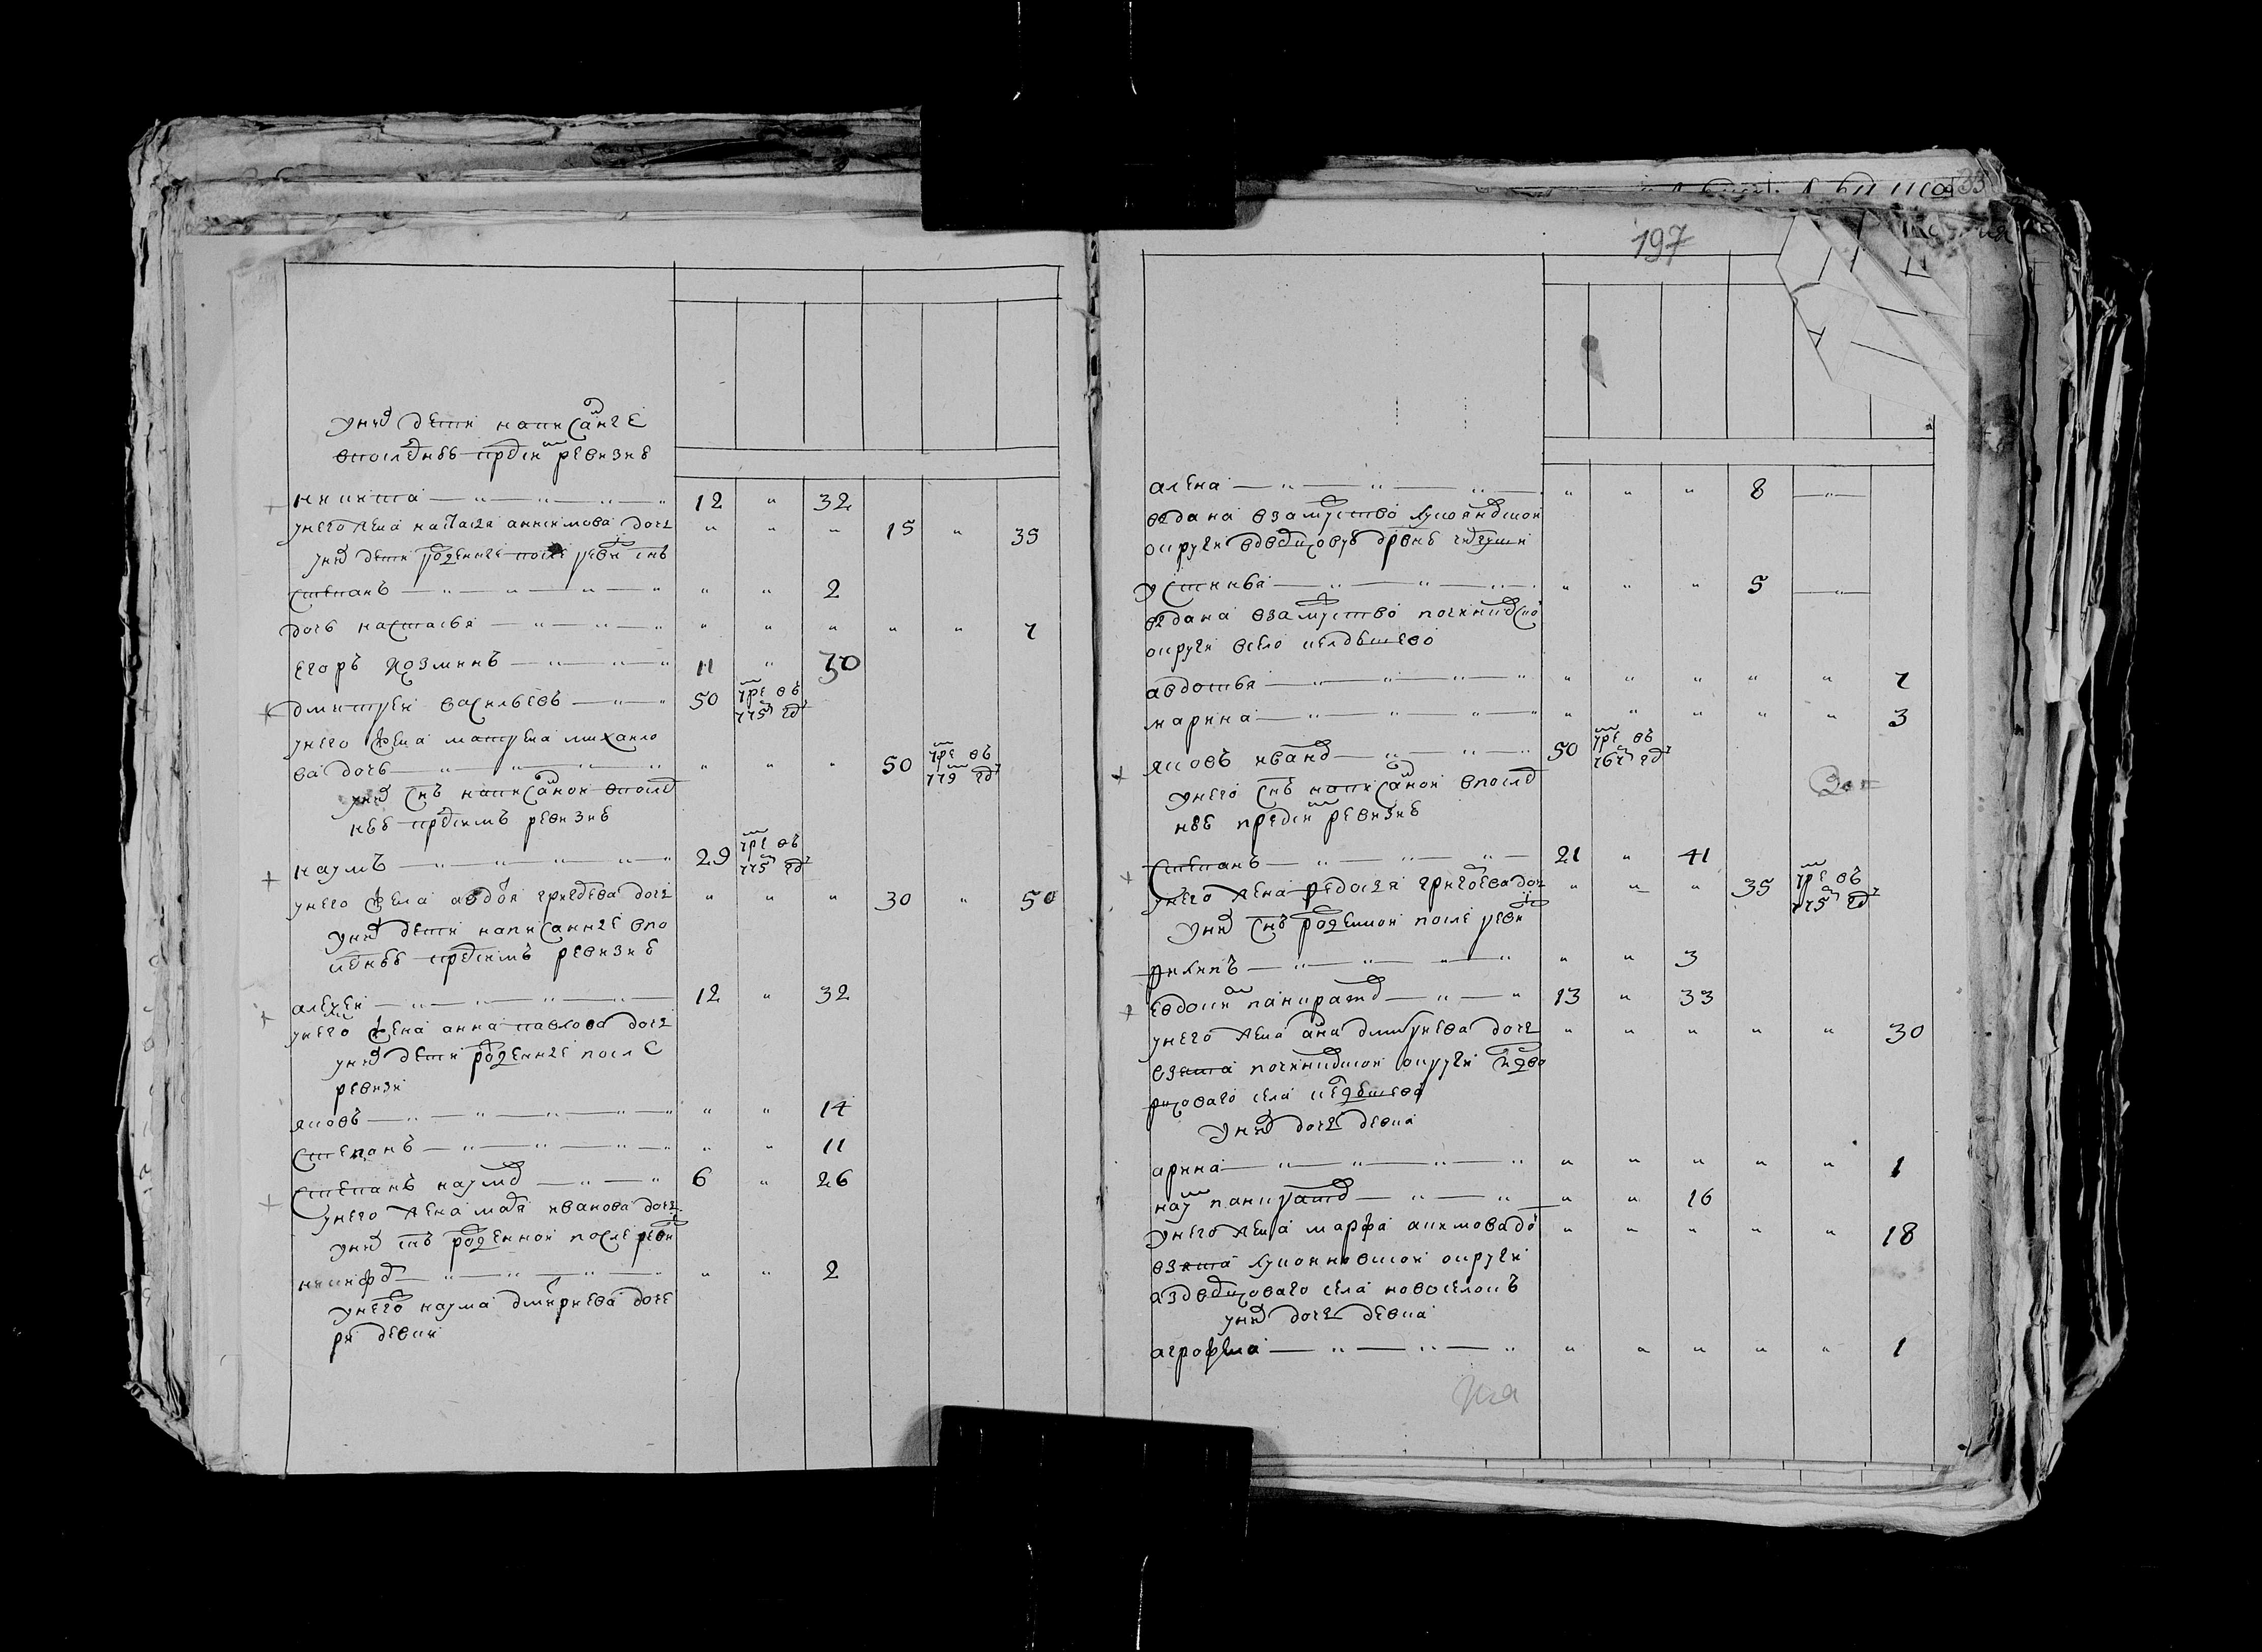 197
у них дети написанные
в последней пред сим ревизиѣ
никита 12 " 32
у него жена настасья анисимова дочь " " " 15 " 35
у них дети рожденные после ревизии снъ
степанъ " " 2
дочь настасья " " " " " 7
егоръ козминъ 11 " 30
дмитреи васильевъ 50 умре въ 775 годȣ
у него жена матрена михаило
ва дочь " " " 50 умре въ 779 годȣ
у них снъ написанной в послед
ней пред симъ ревизиѣ
наумъ 29 умре въ 775 годȣ
у него жена авдотья дочь " " " 30 " 50
у них дети написанные в по
следней пред симъ ревизиѣ
алексеи 12 " 32
у него жена анна павлова дочь
у них дети рожденные после
ревизи
яковъ " " 14
степанъ " " 11
степанъ наумов 6 " 26
у него жена марья иванова дочь
у них снъ рожденнои после ревизи
никифор " " 2
у него наума дмитриева доче
ри девки
алена " " " 8 "
выдана в замужство лукояновскои
округи в дворцовую деревню
устинья " " " 5 "
выдана в замужство починковской
округи в село
авдотья " " " " " 7
марина " " " " " 3
яковъ иванов 50 умре въ 767 годȣ
у него снъ написаннои в послед
ней пред сим ревизиѣ
степанъ 21 " 41
у него жена федосья григорьева дочь " " " 35 умре въ 775 годȣ
у них снъ рожденнои после ревизи
филипъ " " 3
евдоким панкратов 13 " 33
у него жена анна дмитриева дочь " " " " " 30
взята починковскои округи из дво
рцоваго села
у них дочь девка
арина " " " " " 1
наум панкратов " " 16
у него жена марфа акимова дочь " " " " " 18
взята лукояновскои округи
из дворцоваго села новоселокъ
у них дочь девка
аграфена " " " " " 1